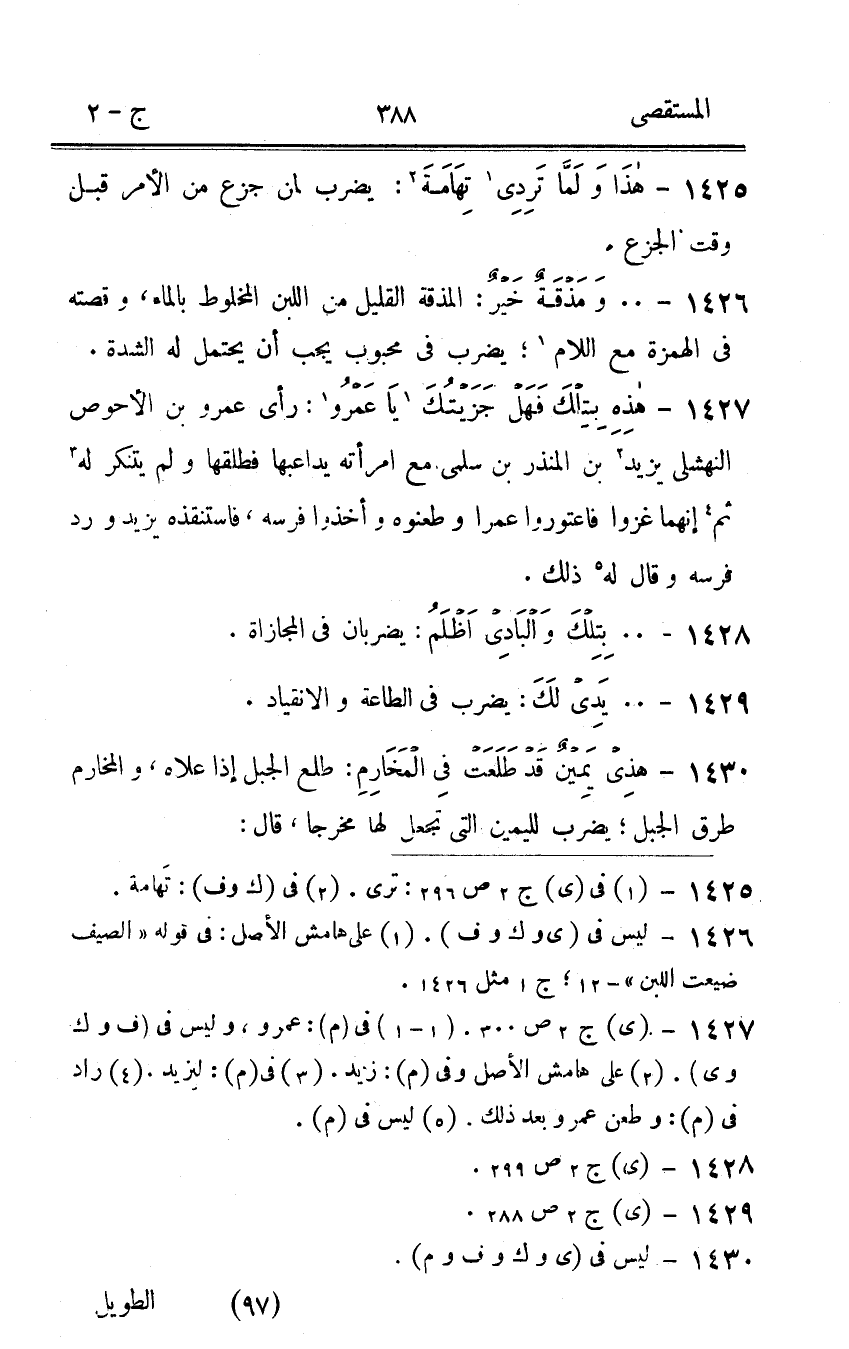 المستقصى ٣٨٨ ج - ٢
١٤٢٥ - هٰذَا وَ لَمَّا تَرِدِى١ تِهَامَةَ٢ : يضرب لمن جزع من الأمر قبل
وقت الجزع .
١٤٢٦ - ٠٠ وَ مَذْقَةٌ خَيْرٌ : المذقة القليل من اللبن المخلوط بالماء، و قصته
فى الهمزة مع اللام١ ؛ يضرب فى محبوب يجب أن يحتمل له الشدة .
١٤٢٧ - هٰذِهِ بِتِلْكَ فَهَلْ جَزَيْتُكَ ١يَا عَمْرُو١ : رأى عمرو بن الأحوص
النهشلى يزيد٢ بن المنذر بن سلمى مع امرأته يداعبها فطلقها و لم يتنكر له٣
ثم٤ إنهما غزوا فاعتوروا عمرا و طعنوه و أخذوا فرسه ، فاستنقذه يزيد و رد
فرسه و قال له٥ ذلك .
١٤٢٨ - ٠٠ بِتِلْكَ وَ الْبَادِىْ اَظْلَمُ : يضربان فى المجازاة .
١٤٢٩ - ٠٠ يَدِىْ لَكَ : يضرب فى الطاعة و الانقياد .
١٤٣٠ - هذِىْ يَمِينٌ قَدْ طَلَعَتْ فِى الْمَخَارِمِ : طلع الجبل إذا علاه ، و المخارم
طرق الجبل ؛ يضرب لليمين التى تجعل لها مخرجا ، قال :
١٤٢٥ - (١) فى (ى) ج ٢ ص ٢٩٦ : ترى . (٢) فى (ك وف) : تَهامة .
١٤٢٦ - ليس فى (ى و ك و ف ) . (١) على هامش الأصل : فى قوله « الصيف
ضيعت اللبن » - ١٢ ؛ ج ١ مثل ١٤٢٦ .
١٤٢٧ - (ى) ج ٢ ص ٣٠٠ . (١ - ١) فى (م) : عمرو ، و ليس فى (ف و ك
و ى) . (٢) على هامش الأصل وفى (م) : زيد . (٣) فى (م) : ليزيد . (٤) زاد
فى (م) : و طعن عمرو بعد ذلك . (٥) ليس فى (م) .
١٤٢٨ - (ى) ج ٢ ص ٢٩٩ .
١٤٢٩ - (ى) ج ٢ ص ٢٨٨ .
١٤٣٠ - ليس فى (ى و ك و ف و م) .
(٩٧) الطويل